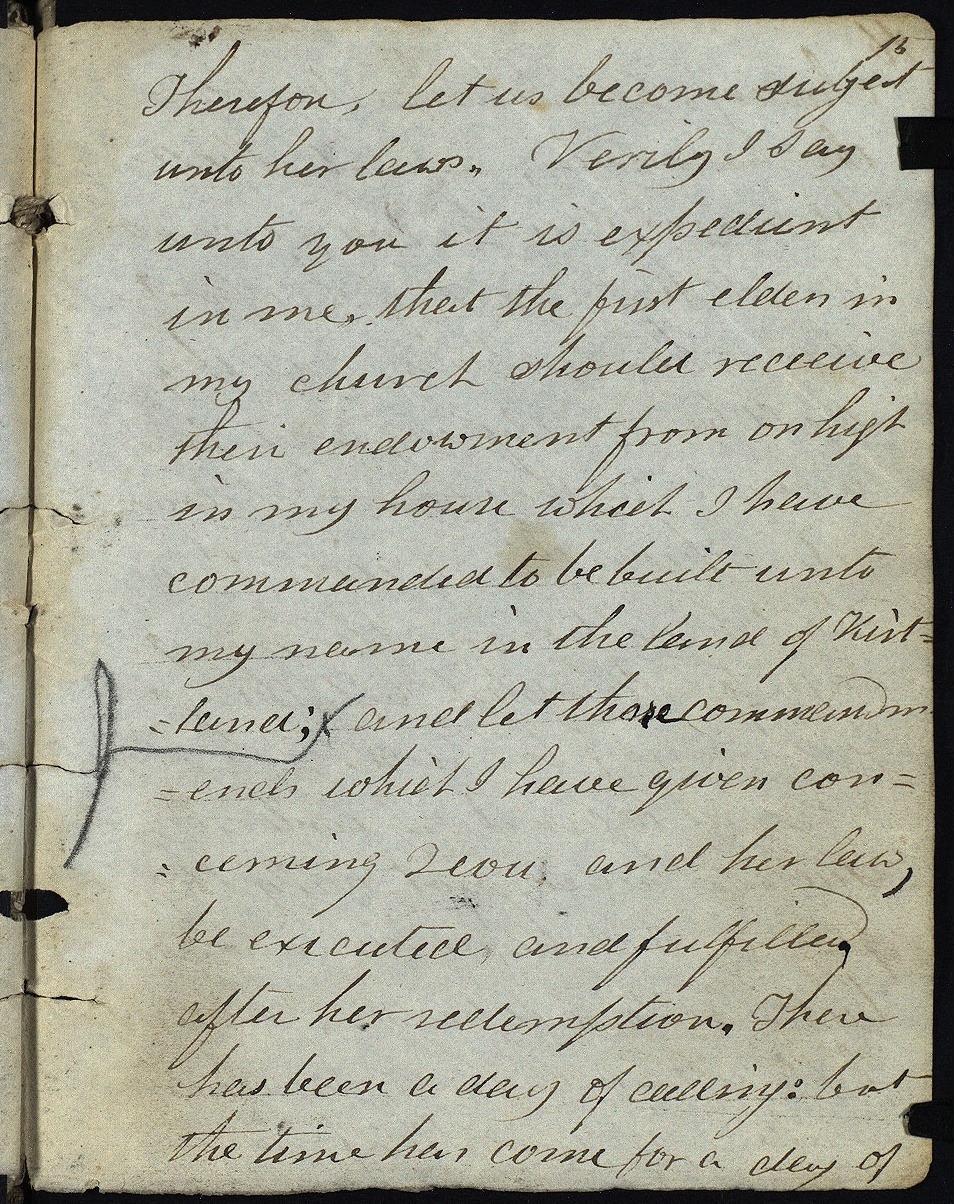 15
Therefore, let us become subject
unto her laws. Verily I say
unto you it is expedient
in me, that the first elders in
my church should receive
their endowment from on high
in my house which I have
commanded to be built unto
my name in the land of Kirt=
-land; and let those commandm-
=ents which I have given con=
: cerning Zion, and her law,
be executed, and fulfilled,
after her redemption. There
has been a day of calling: but
the time has come for a day of